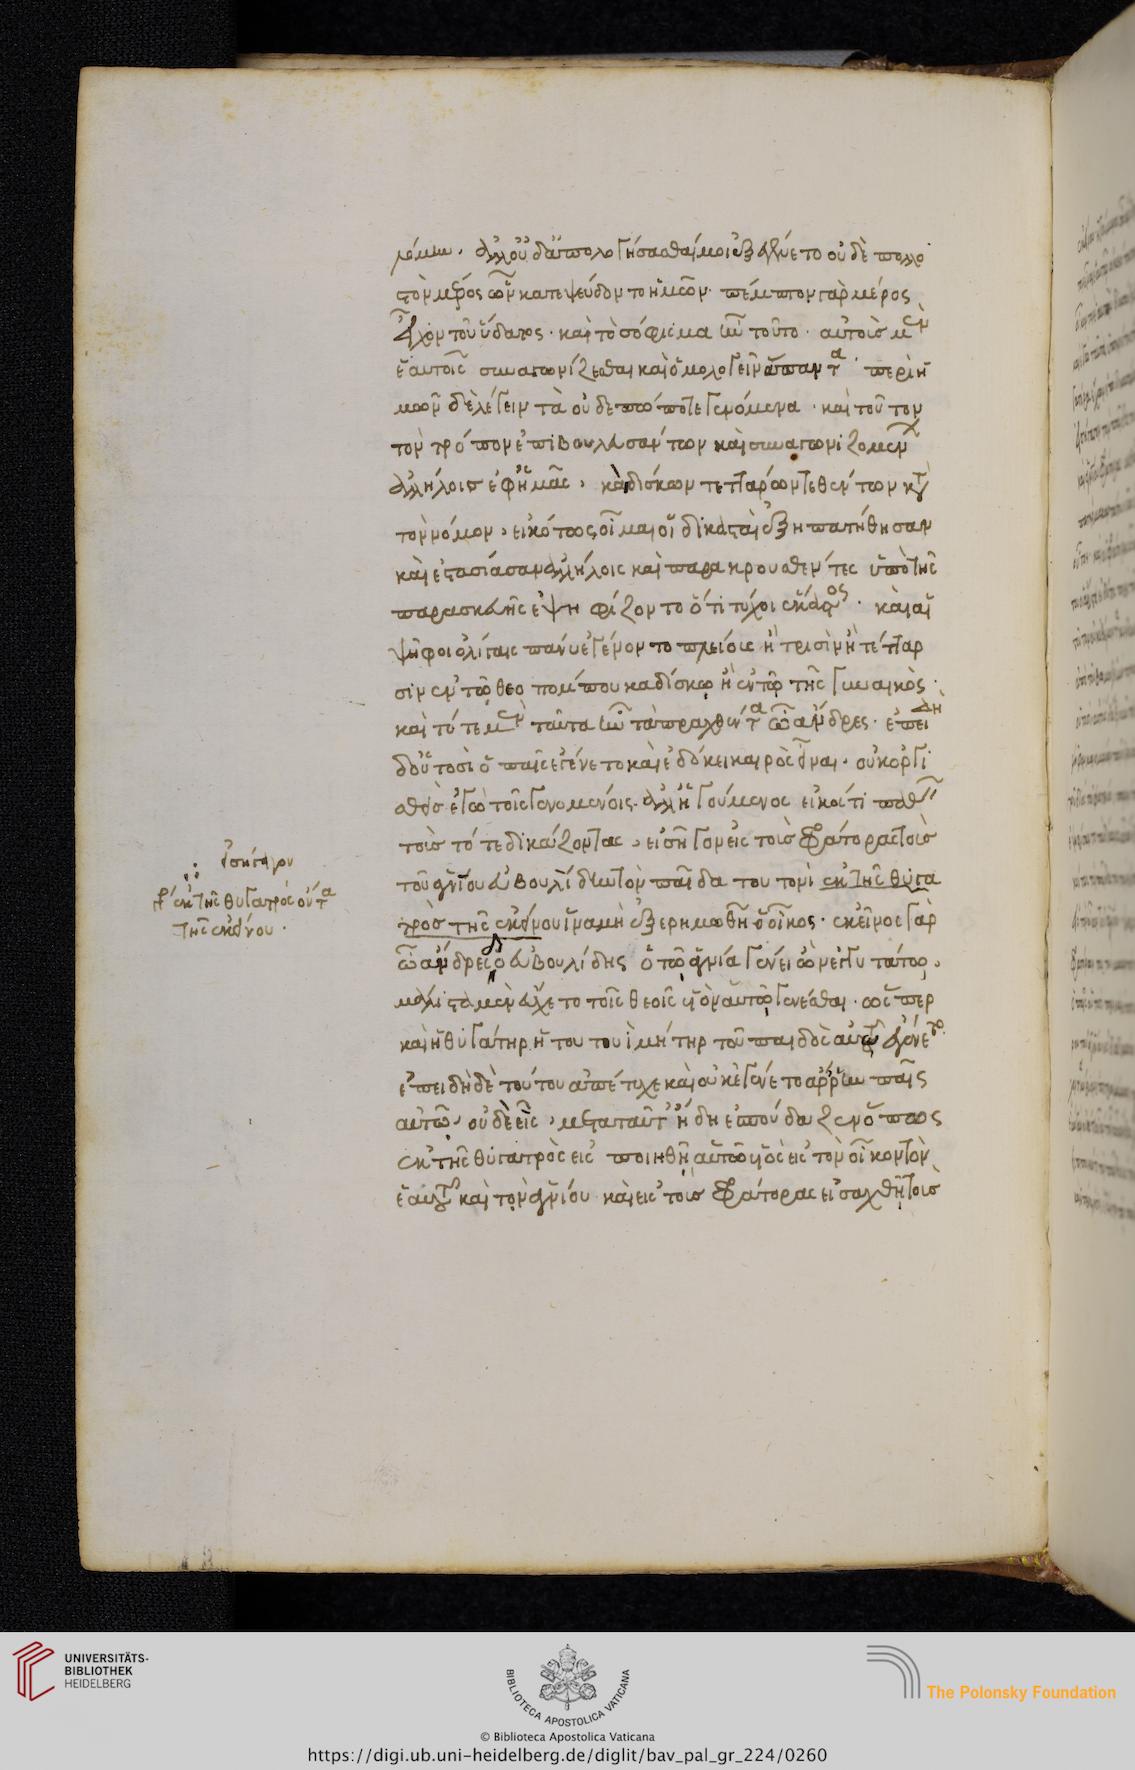 μόμῳ. ἀλλ' οὐδ' ἀπολογήσασθαί μοι ἐξεγένετο οὐδὲ πολλο
στὸν μέρος ὧν κατεψεύδοντο ἡμῶν· πέμπτον γὰρ μέρος
εἶχον τοῦ ὕδατος· καὶ τὸ σόφισμα ἦν τοῦτο· αὐτοῖς μὲν
ἑαυτοῖς συναγωνίζεσθαι καὶ ὁμολογεῖν ἅπαντα· περὶ ἡ
μῶν δὲ λέγειν τὰ οὐδεπώποτε γενόμενα· καὶ τοῦτον
τὸν τρόπον ἐπιβουλευσάντων καὶ συναγωνιζομένων
ἀλλήλοις ἐφ' ἡμᾶς, καδίσκων τεττάρων τεθέντων κατὰ
τὸν νόμον, εἰκότως οἶμαι οἱ δικασταὶ ἐξηπατήθησαν
καὶ ἐστασίασαν ἀλλήλοις καὶ παρακρουσθέντες ὑπὸ τῆς
παρασκευῆς ἐψηφίζοντο ὅ τι τύχοι ἕκαστος· καὶ αἱ
ψῆφοι ὀλίγαις πάνυ ἐγένοντο πλείους ἢ τρισὶν ἢ τέτταρ
σιν ἐν τῷ θεοπόμπου καδίσκῳ ἢ ἐν τῷ τῆς γυναικὸς·
καὶ τότε μὲν ταῦτα ἦν τὰ πραχθέντα ὦ ἄνδρες· ἐπειδὴ
δ' οὑτοσὶ ὁ παῖς ἐγένετο καὶ ἐδόκει καιρὸς εἶναι, οὐκ ὀργι
σθεὶς ἐγὼ τοῖς γενομένοις· ἀλλ' ἡγούμενος εἰκός τι παθεῖν
τοὺς τότε δικάζοντας, εἰσήγον εἰς τοὺς φράτορας τοὺς
τοῦ ἁγνίου εὐβουλίδῃ τὸν παῖδα τουτονὶ ἐκ τῆς θυγα
τρὸς τῆς ἐκείνου ἵνα μὴ ἐξερημωθῇ ὁ οἶκος· ἐκεῖνος γὰρ
ὦ ἄνδρες ὁ εὐβουλίδης ὁ τῷ ἁγνίᾳ γένει ὢν ἐγγυτάτω,
μάλιστα μὲν εὔχετο τοῖς θεοῖς υἱὸν αὑτῷ γενέσθαι· ὥσπερ
καὶ ἡ θυγάτηρ ἡ τουτουὶ μήτηρ τοῦ παιδὸς αὐτῷ ἐγένετο·
ἐπειδὴ δὲ τούτου ἀπέτυχε καὶ οὐκ ἐγένετο ἄρρην παῖς
αὐτῷ, οὐδὲ εἷς, μετὰ ταῦτ' ἤδη ἐσπούδαζεν ὅπως
ἐκ τῆς θυγατρὸς εἰσποιηθῇ αὑτῷ υἱὸς εἰς τὸν οἶκον τὸν
ἑαυτοῦ καὶ τὸν ἁγνίου καὶ εἰς τοὺς φράτορας εἰσαχθῇ τοὺς
εἰσήγαγον
ἐκ τῆς θυγατρὸς ὄντα
τῆς ἐκείνου·
UNIVERSITÄTS-
BIBLIOTHEK
HEIDELBERG
BIBLIOTECA APOSTOLICA VATICANA
The Polonsky Foundation
© Biblioteca Apostolica Vaticana
https://digi.ub.uni-heidelberg.de/diglit/bav_pal_gr_224/0260